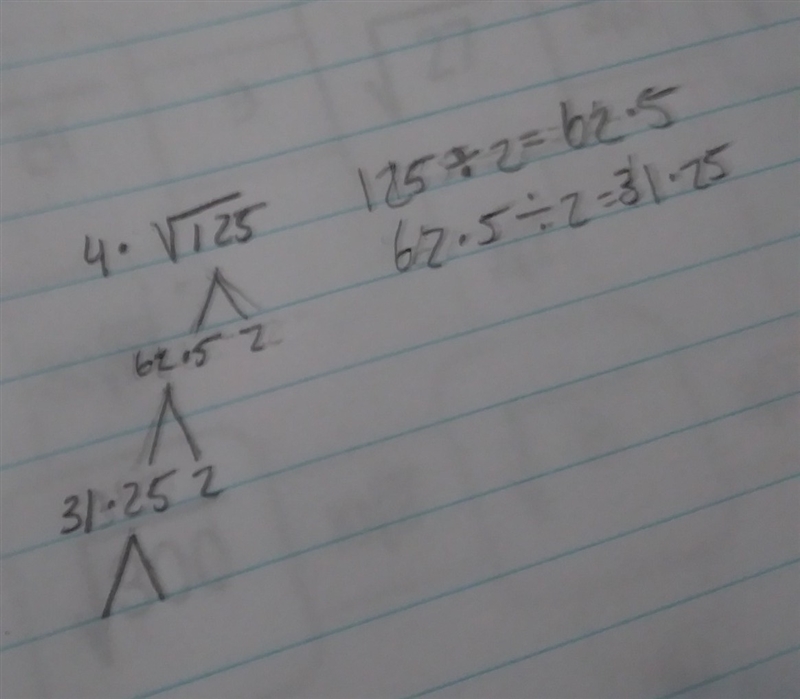 125 ÷ 2 = 62.5
62.5 ÷ 2 = 31.25
4. √125
62.5 2
31.25 2